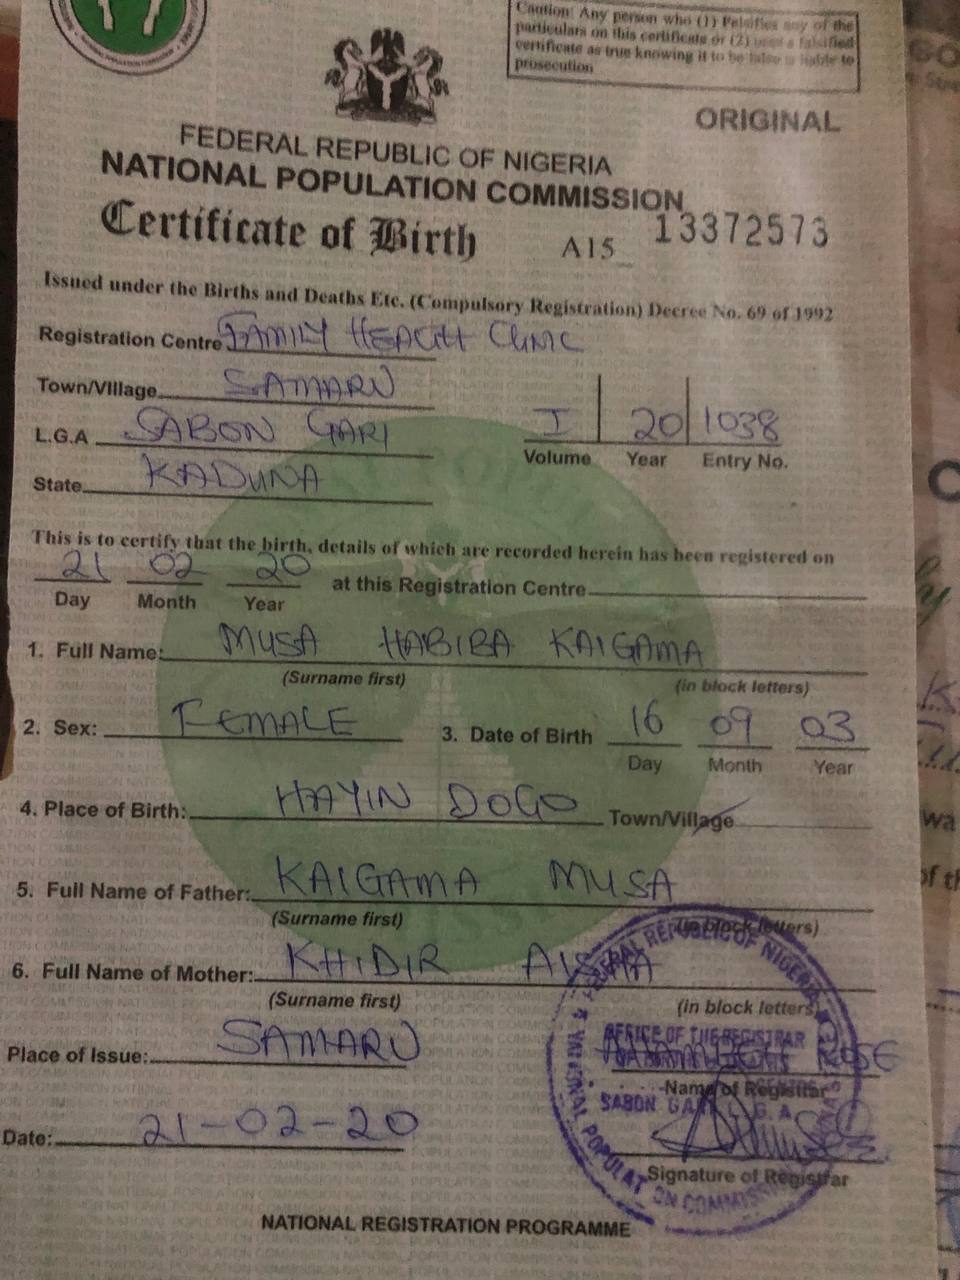 Caution: Any person who (1) Falsifies any of the
particulars on this certificate or (2) uses a falsified
certificate as true knowing it to be false is liable to
prosecution
ORIGINAL
FEDERAL REPUBLIC OF NIGERIA
NATIONAL POPULATION COMMISSION
Certificate of Birth A15 13372573
Issued under the Births and Deaths Etc. (Compulsory Registration) Decree No. 69 of 1992
Registration Centre FAMILY HEALTH CLINIC
Town/Village SAMARU
L.G.A SABON GARI
I 20 1038
Volume Year Entry No.
State KADUNA
This is to certify that the birth, details of which are recorded herein has been registered on
21 02 20 at this Registration Centre
Day Month Year
1. Full Name: MUSA HABIBA KAIGAMA
(Surname first) (in block letters)
2. Sex: FEMALE 3. Date of Birth 16 09 03
Day Month Year
4. Place of Birth: HAYIN DOGO Town/Village
5. Full Name of Father: KAIGAMA MUSA
(Surname first) (in block letters)
6. Full Name of Mother: KHIDIR
(Surname first) (in block letters)
Place of Issue: SAMARU
ROSE
Name of Registrar
Date: 21-02-20
Signature of Registrar
FEDERAL REPUBLIC OF NIGERIA
OFFICE OF THE REGISTRAR
SABON GARI L.G.A
NATIONAL POPULATION COMMISSION
NATIONAL REGISTRATION PROGRAMME